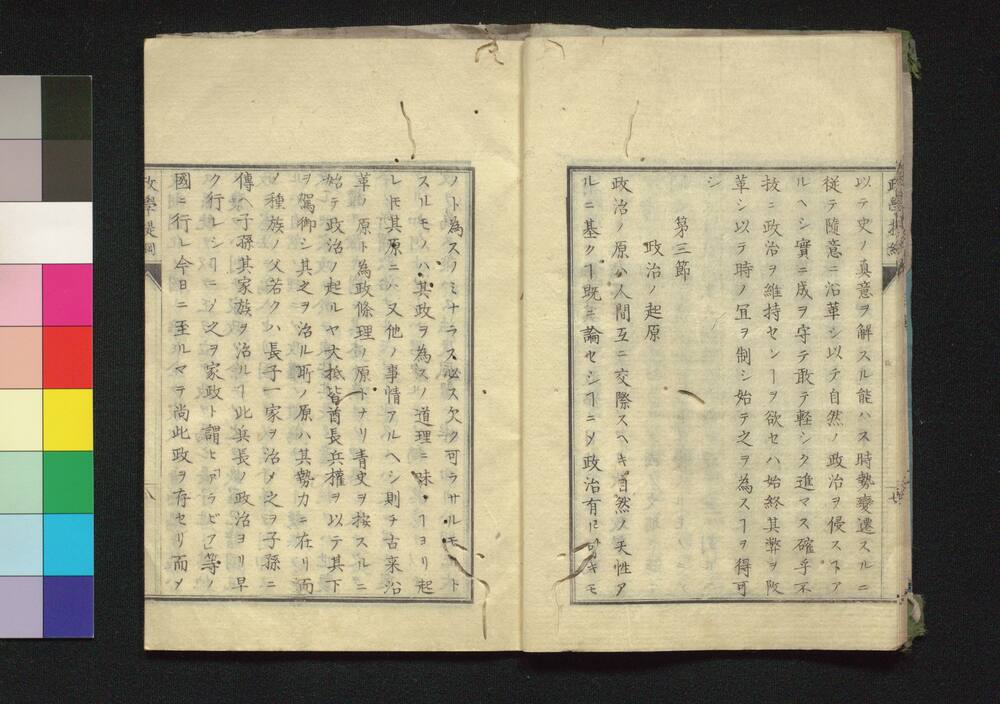 以テ史ノ真意ヲ解スル能ハス時勢變遷スルニ
従テ隨意ニ沿革シ以テ自然ノ政治ヲ侵ス
ルヘシ實ニ成ヲ守テ敢テ軽シク進マス確乎不
抜ニ政治ヲ維持センヿヲ欲セハ始終其弊ヲ改
革シ以テ時ノ冝ヲ制シ始テ之ヲ為スヿヲ得可
シ
第三節
政治ノ起原
政治ノ原ハ人間互ニ交際スヘキ自然ノ天性ア
ルニ基クヿ既ニ論セシヿニメ政治有
ノト為スノミナラス必ス欠ク可ラサルモノト
スルモノハ其政ヲ為スノ道理ニ昧キヿヨリ起
レ𪜈其原ニハ又他ノ事情アルヘシ則チ古来沿
革ノ原ト為政條理ノ原トナリ青史ヲ按スルニ
始テ政治ノ起ルヤ大抵皆酋長兵權ヲ以テ其下
ヲ駕御シ其之ヲ治ル所ノ原ハ其勢力ニ在リ而
ノ種族ノ父若クハ長子一家ヲ治メ之ヲ子孫ニ
傳ヘ子孫其家族ヲ治ルヿ此兵長ノ政治ヨリ早
ク行レシヿニメ之ヲ家政ト謂ヒ「アラビア」等ノ
國ニ行レ今日ニ至ルマテ尚此政ヲ存セリ而メ
政學提綱
八